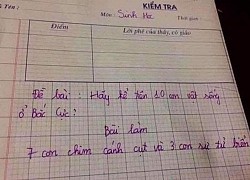 ọ Tên :
KIỂM TRA
Môn: Sinh Học
Thời gian :
Điểm
Lời phê của thầy, cô giáo
Đề bài : Hãy kể tên 10 con vật sống
ở Bắc Cực :
Bài làm
7 con chim cánh cụt và 3 con sư tử biển